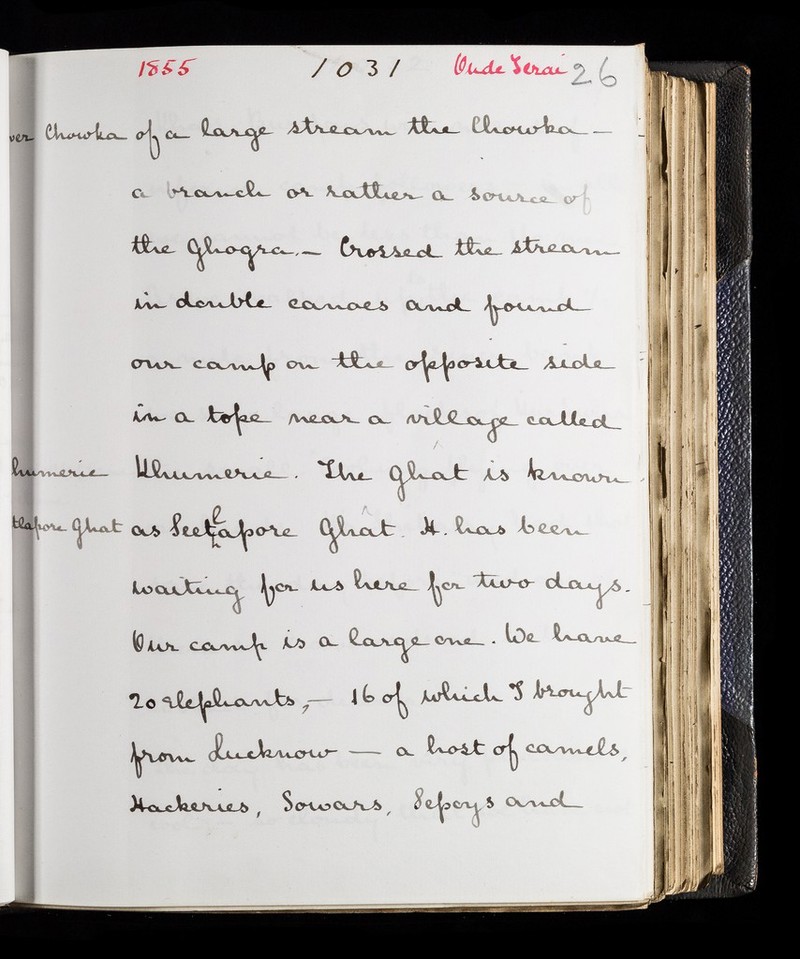 1855 1031 Oude Terai 26
Chowka of a large stream the Chowka —
a branch or rather a source of
the Ghogra. — Crossed the stream
in double canoes and found
our camp on the opposite side
in a tope near a village called
Khumerie. The Ghat is known
as Seetlapore Ghât. H. has been
waiting for us here for two days.
Our camp is a large one. We have
20 elephants, — 16 of which I brought
from Lucknow — a host of camels,
Hackeries, Sowars, Sepoys and